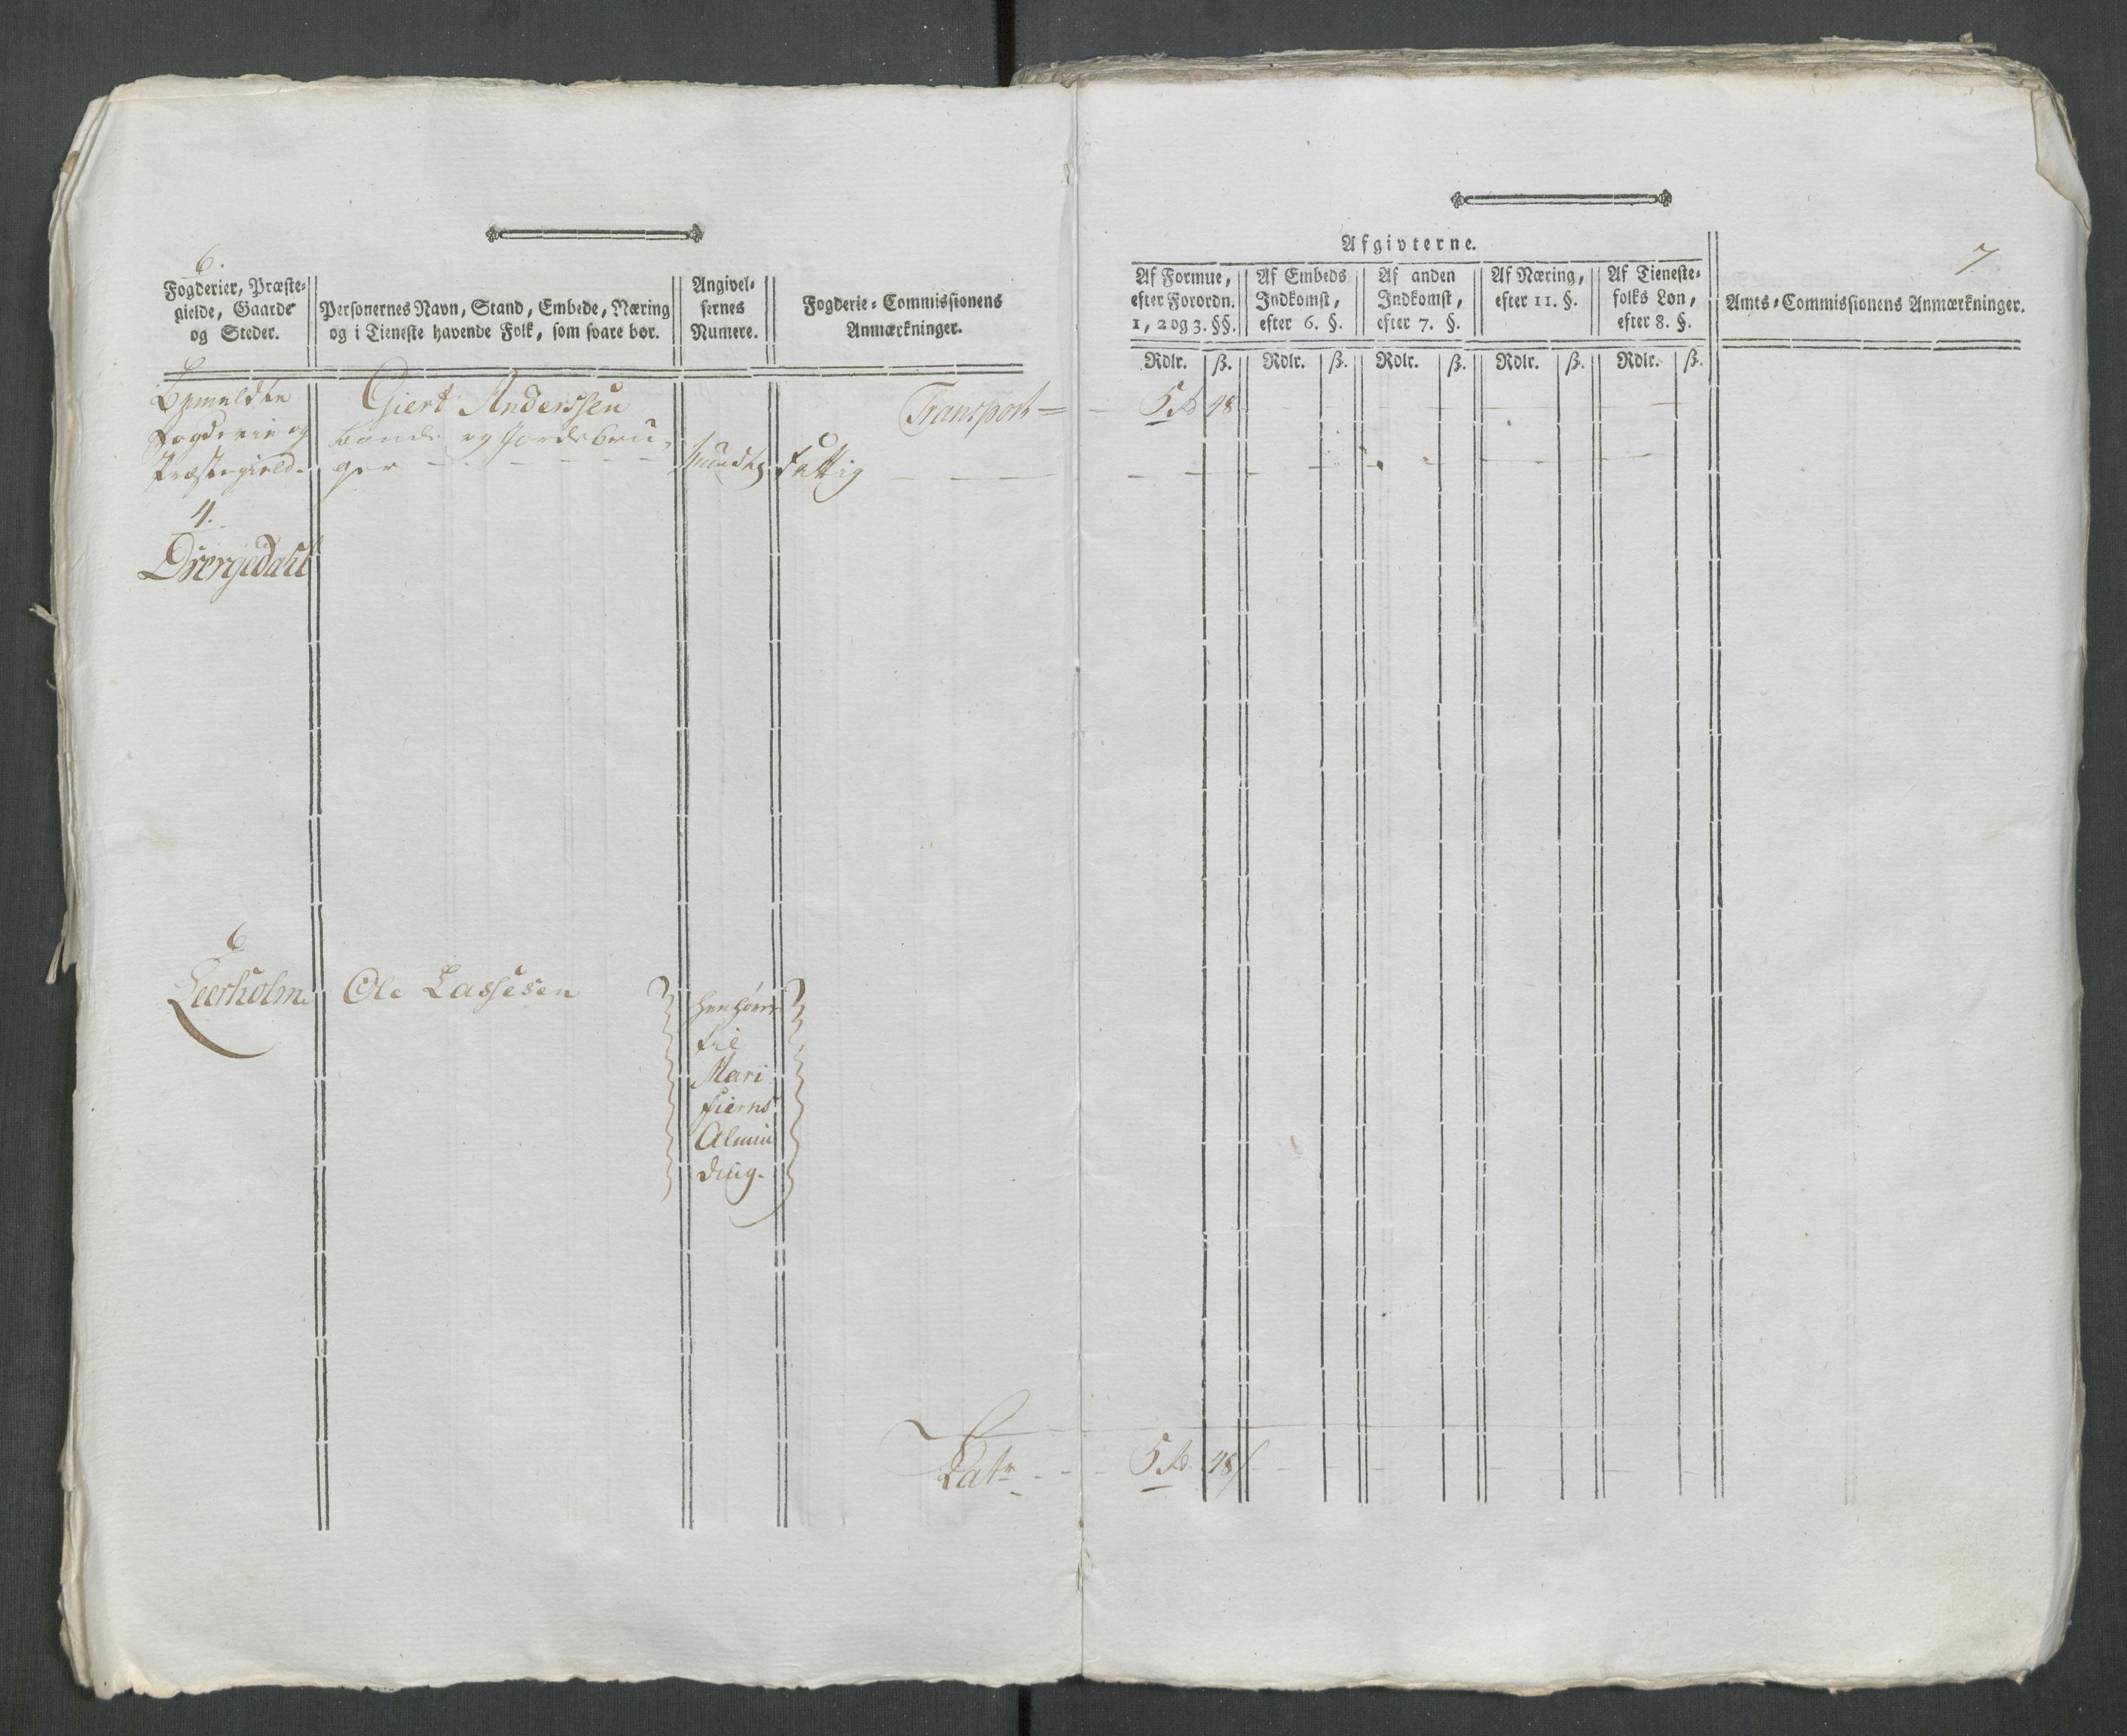 6.
Fogderier, Præste-
gielde, Gaarde
og Steder.
Personernes Navn, Stand, Embede, Næring
og i Tieneste havende Folk, som svare bør.
Angivel-
sernes
Numere.
Fogderie-Commissionens
Anmærkninger.
Bemeldte
Fogderie og
Præstegield.
4.
Giert Anderssen
bonde og Jordebru-
ger
Mundtl.
Fattig
Transport
6
Leerholm
Ole Lassesen
henhører
til
Mari
fierns
Almin
ding.
Latr
7
Afgivterne.
Af Formue,
efter Forordn.
1, 2 og 3. §§.
Af Embeds
Indkomst,
efter 6. §.
Af anden
Indkomst,
efter 7. §.
Af Næring,
efter 11. §.
Af Tieneste-
folks Løn,
efter 8. §.
Amts-Commissionens Anmærkninger.
Rdlr. ß. Rdlr. ß. Rdlr. ß. Rdlr. ß. Rdlr. ß.
5 48
5 48